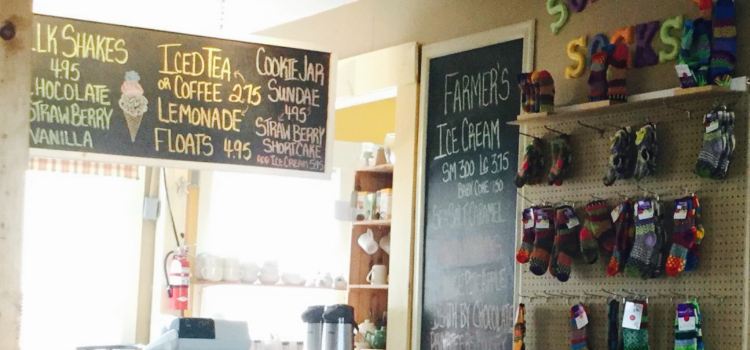 ILK SHAKES
4.95
CHOCOLATE
STRAWBERRY
VANILLA
ICED TEA
OR COFFEE 2.75
LEMONADE
FLOATS 4.95
COOKIE JAR
SUNDAE
4.95
STRAWBERRY
SHORTCAKE
ADD ICE CREAM 5.95
FARMER'S
ICE CREAM
SM 3.00 LG 3.75
BABY CONE 1.50
SALT CARAMEL
DEATH BY CHOCOLATE
SOCKS